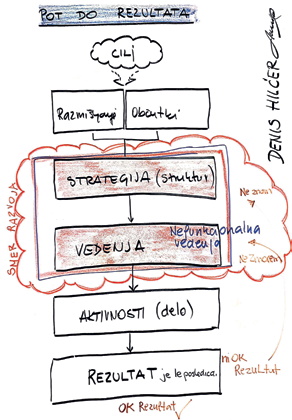 POT DO REZULTATA
CILJ
Razmišljanje
Občutki
STRATEGIJA (struktur)
VEDENJA
Nefunkcionalna
vedenja
AKTIVNOSTI (delo)
REZULTAT je le posledica.
OK Rezultat
ni OK
Rezultat
Ne znam
Ne zmorem
SMER RAZVOJA
DENIS HILČER